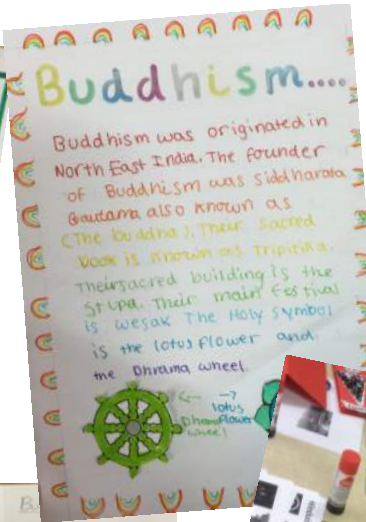 Buddhism....
Buddhism was originated in
North East India. The founder
of Buddhism was siddharata
Gautama also known as
(The buddha). Their sacred
book is known as Tripitika.
Their sacred building is the
Stupa. Their main festival
is wesak The Holy symbol
is the lotus flower and
the Dhrama wheel.
<- ->
lotus
flower
Dharma
wheel